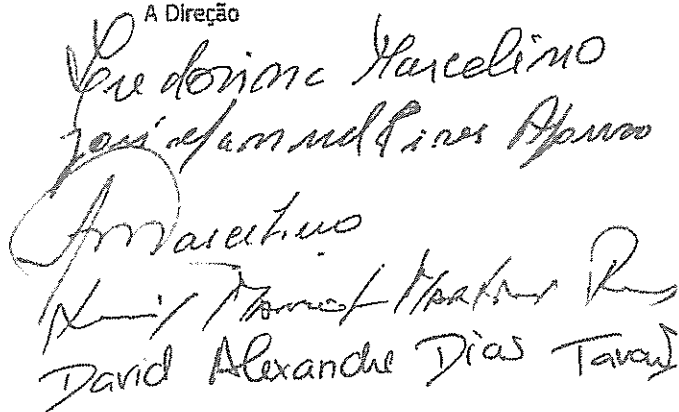 A Direção
Marcelino
José Manuel Pires Afonso
Marcelino
Luís Manuel Martins
David Alexandre Dias Tavares